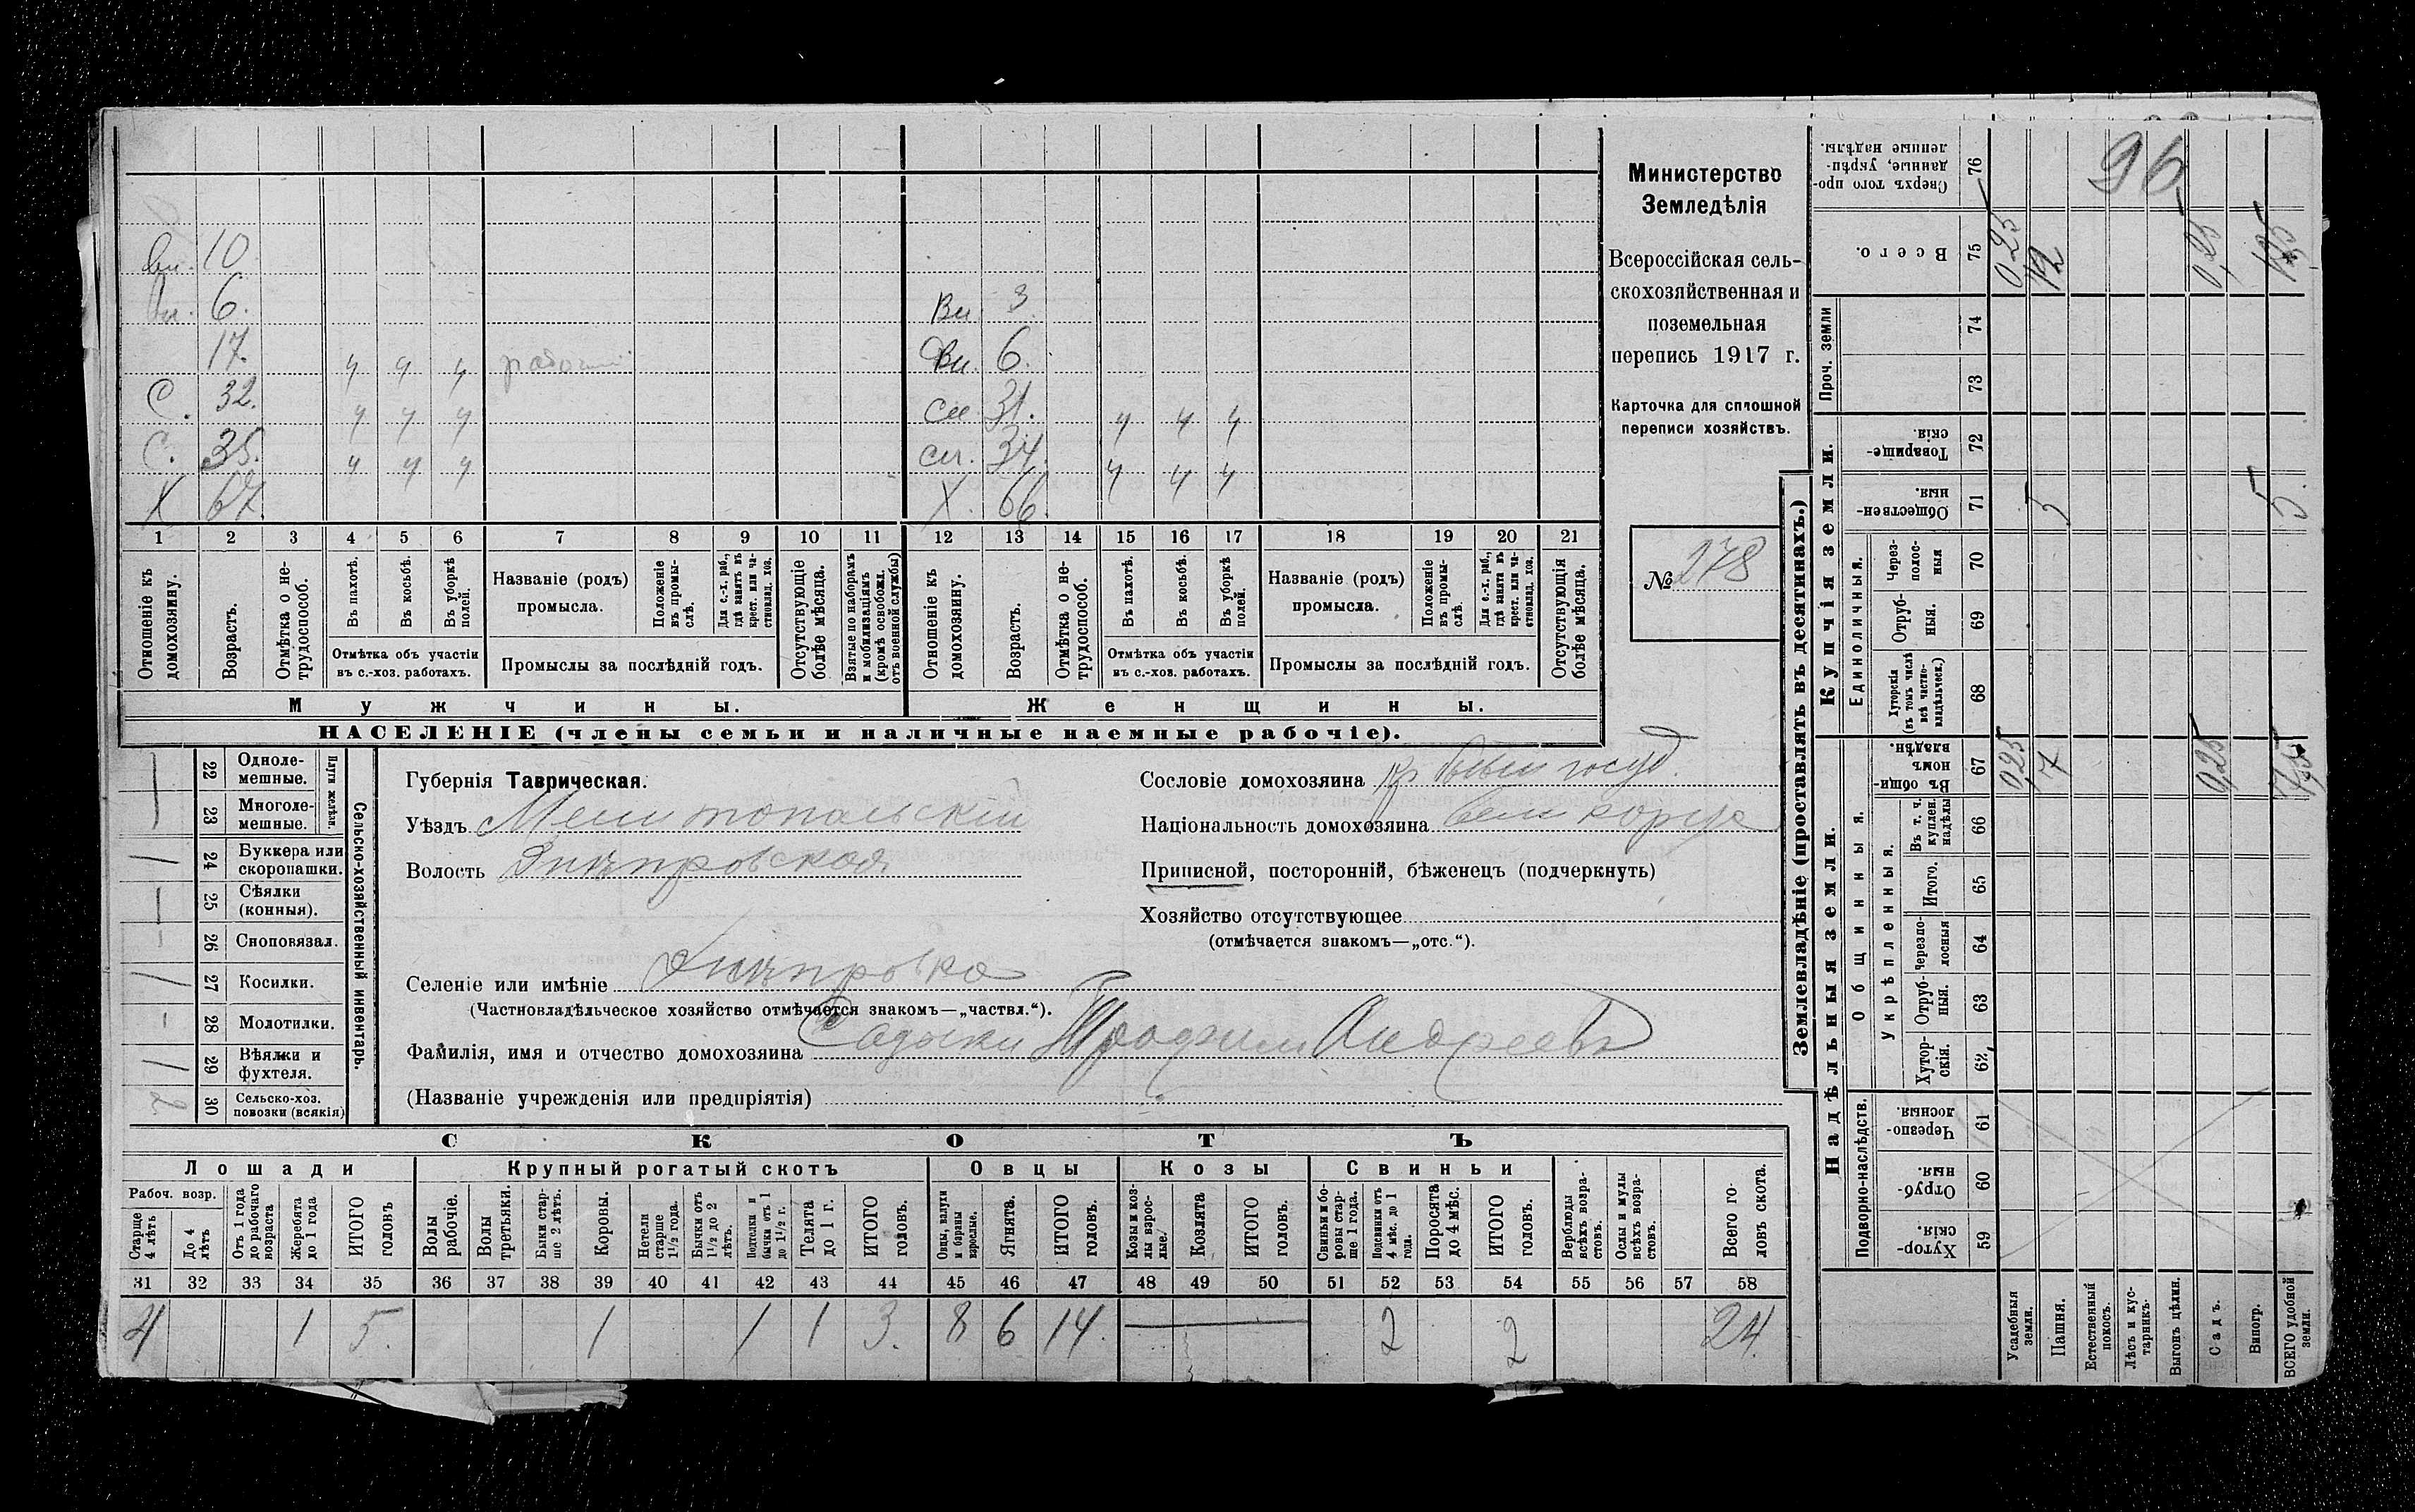 Министерство
Земледѣлія
Всероссійская сель-
скохозяйственная и
поземельная
перепись 1917 г.
Карточка для сплошной
переписи хозяйствъ.
№ 278
вн. 10
вн. 6.
17. ч ч ч
С. 32. ч ч ч
С. 35. ч ч ч
Х 67.
Вн. 3
Вн. 6.
сн. 31. ч ч ч
сн. 34. ч ч ч
Х. 66.
1 2 3 4 5 6 7 8 9 10 11 12 13 14 15 16 17 18 19 20 21
Отношеніе къ домохозяину.
Возрастъ.
Отмѣтка о не-трудоспособ.
Въ пахотѣ.
Въ косьбѣ.
Въ уборкѣ полей.
Отмѣтка объ участіи
въ с.-хоз. работахъ.
Названіе (родъ)
промысла.
Положеніе въ промы-слѣ.
Для с.-х. раб., гдѣ занятъ въ крест. или ча-стновлад. хоз.
Промыслы за послѣдній годъ.
Отсутствующіе болѣе мѣсяца.
Взятые по наборамъ и мобилизаціямъ (кромѣ освобожд. отъ военной службы)
Отношеніе къ домохозяину.
Возрастъ.
Отмѣтка о не-трудоспособ.
Въ пахотѣ.
Въ косьбѣ.
Въ уборкѣ полей.
Отмѣтка объ участіи
въ с.-хоз. работахъ.
Названіе (родъ)
промысла.
Положеніе въ промы-слѣ.
Для с.-х. раб., гдѣ занята въ крест. или ча-стновлад. хоз.
Промыслы за послѣдній годъ.
Отсутствующія болѣе мѣсяца.
Мужчины.
Женщины.
НАСЕЛЕНІЕ (члены семьи и наличные наемные рабочіе).
Сельско-хозяйственный инвентарь.
Плуги желѣзн.
22 Одноле-мешные.
23 Многоле-мешные.
1 24 Буккера или скоропашки.
25 Сѣялки (конныя).
26 Сноповязал.
1 27 Косилки.
28 Молотилки.
1 29 Вѣялки и фухтеля.
2 30 Сельско-хоз. повозки (всякія)
Губернія Таврическая.
Уѣздъ Мелитопольскій
Волость Днѣпровская
Селеніе или имѣніе Днѣпровка
(Частновладѣльческое хозяйство отмѣчается знакомъ—„частвл.“).
Фамилія, имя и отчество домохозяина Трофим Андреевъ
(Названіе учрежденія или предпріятія)
Сословіе домохозяина Кр. бывш госуд.
Національность домохозяина великорус
Приписной, посторонній, бѣженецъ (подчеркнуть)
Хозяйство отсутствующее
(отмѣчается знакомъ—„отс.“).
СКОТЪ
Лошади
Крупный рогатый скотъ
Овцы
Козы
Свиньи
Рабоч. возр.
Старше 4 лѣтъ
До 4 лѣтъ
Отъ 1 года до рабочаго возраста
Жеребята до 1 года
ИТОГО головъ
Волы рабочіе.
Волы третьяки.
Быки стар-ше 2 лѣтъ.
Коровы.
Нетели старше 1½ года.
Бычки отъ 1½ до 2 лѣтъ.
Подтелки и бычки отъ 1 до 1½ г.
Телята до 1 г.
ИТОГО головъ.
Овцы, валухи и бараны взрослые.
Ягнята.
ИТОГО головъ.
Козы и коз-лы взрос-лые.
Козлята
ИТОГО головъ.
Свиньи и бо-ровы стар-ше 1 года.
Подсвинки отъ 4 мѣс. до 1 года.
Поросята до 4 мѣс.
ИТОГО головъ.
Верблюды всѣхъ возра-стовъ.
Ослы и мулы всѣхъ возра-стовъ.
Всего го-ловъ скота.
31 32 33 34 35 36 37 38 39 40 41 42 43 44 45 46 47 48 49 50 51 52 53 54 55 56 57 58
4 1 5. 1 1 1 3. 8 6 14. 2 2 24.
Землевладѣніе (проставлять въ десятинахъ.)
Надѣльныя земли.
Купчія земли.
Проч. земли
Сверхъ того про-данные, укрѣп-ленные надѣлы. 76
96
Всего. 75 0,25 12 0,25
74
73
Товарище-скія. 72
Обществен-ныя. 71 5 5.
Единоличныя.
Через-полос-ныя 70
Отруб-ныя. 69
Хуторскія (въ томъ числѣ всѣ частно-владѣльческ.) 68
Общинныя.
Въ общи-номъ владѣн. 67 0,25 7 0,25
Укрѣпленныя.
Въ т. ч. куплен. надѣлы 66
Итого. 65
Черезпо-лосныя 64
Отруб-ныя. 63
Хутор-скія. 62
Подворно-наслѣдств.
Черезпо-лосныя. 61
Отруб-ныя. 60
Хутор-скія. 59
Усадебныя земли.
Пашня.
Естественный покосъ.
Лѣсъ и кус-тарникъ.
Выгонъ цѣлин.
Садъ.
Виногр.
ВСЕГО удобной земли.